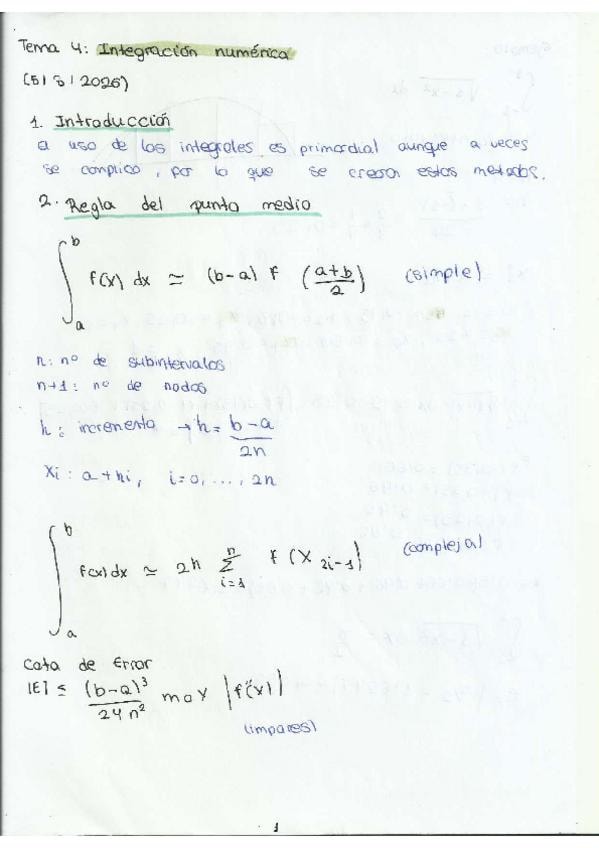 Tema 4: Integración numérica
(5/3/2025)
1. Introducción
El uso de las integrales es primordial aunque a veces
se complica, por lo que se crearon estos métodos.
2. Regla del punto medio
∫_a^b f(x) dx ≃ (b-a) f ((a+b)/2) (simple)
n: nº de subintervalos
n+1: nº de nodos
h: incremento → h = (b-a)/2n
Xi: a + hi, i=0, ..., 2n
∫_a^b f(x) dx ≃ 2h Σ_{i=1}^n f(X_{2i-1}) (compleja)
Cota de Error
|E| ≤ (b-a)³/24n² max |f''(x)|
(impares)
1